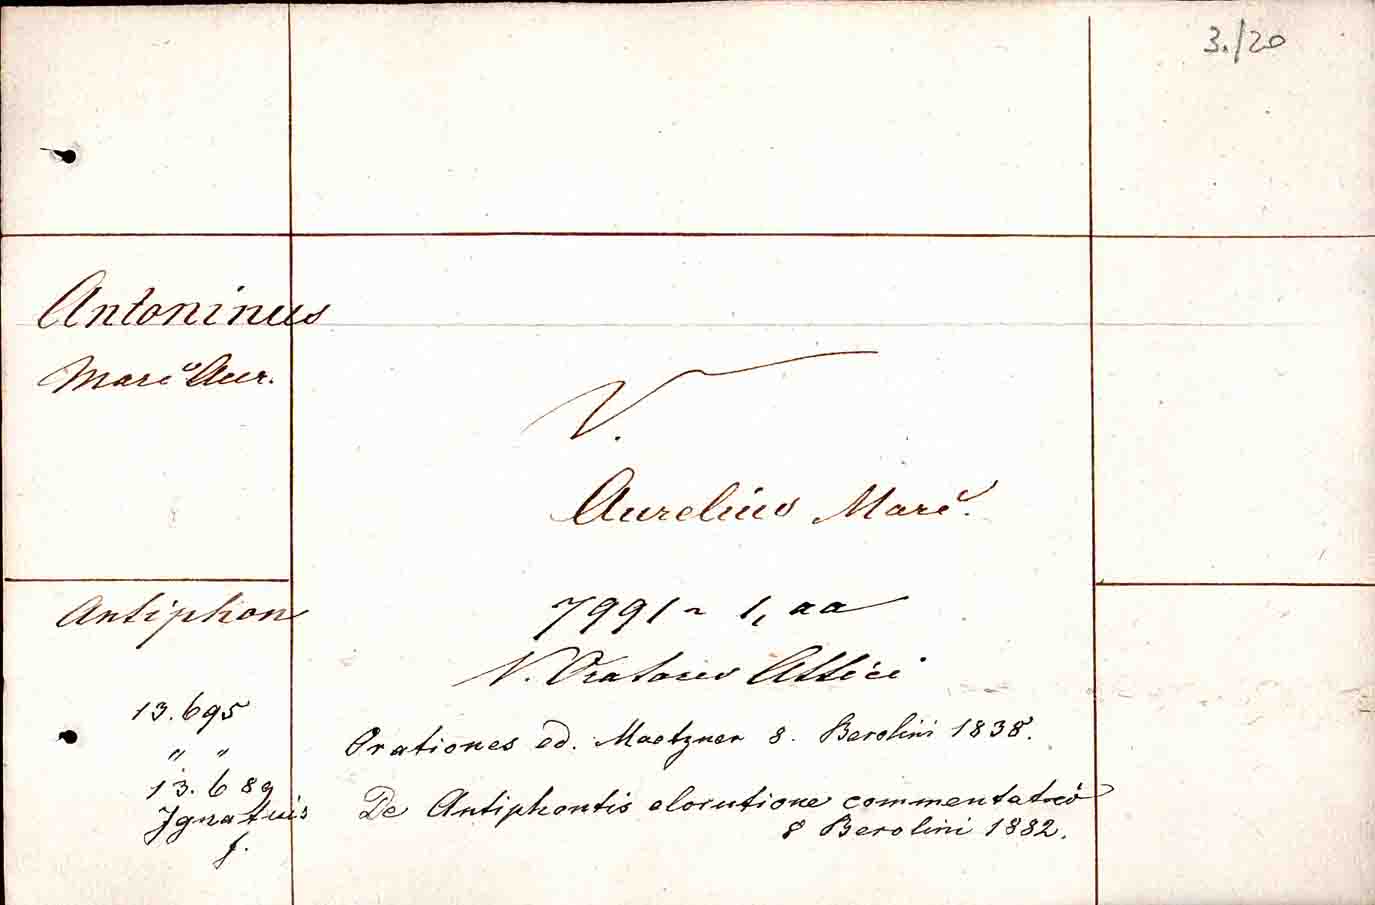 3./20
Antoninus
Marc Aur.
V.
Aurelius Marc.
Antiphon
7991 ~ 1, aa
V. Oratores Attici
13.695
Orationes ed. Maetzner 8. Berolini 1838.
" "
13.689
Ignatius De Antiphontis elocutione commentatio
f. 8 Berolini 1882.